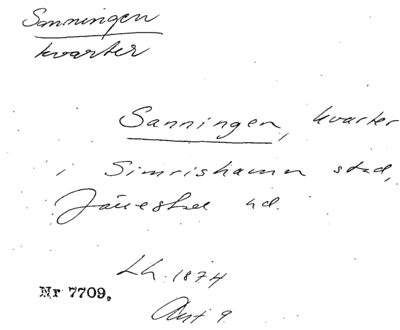 Sanningen
kvarter
Sanningen, kvarter
i Simrishamn stad,
Järrestad hd.
Lh. 1874
Nr 7709.
Avt 9